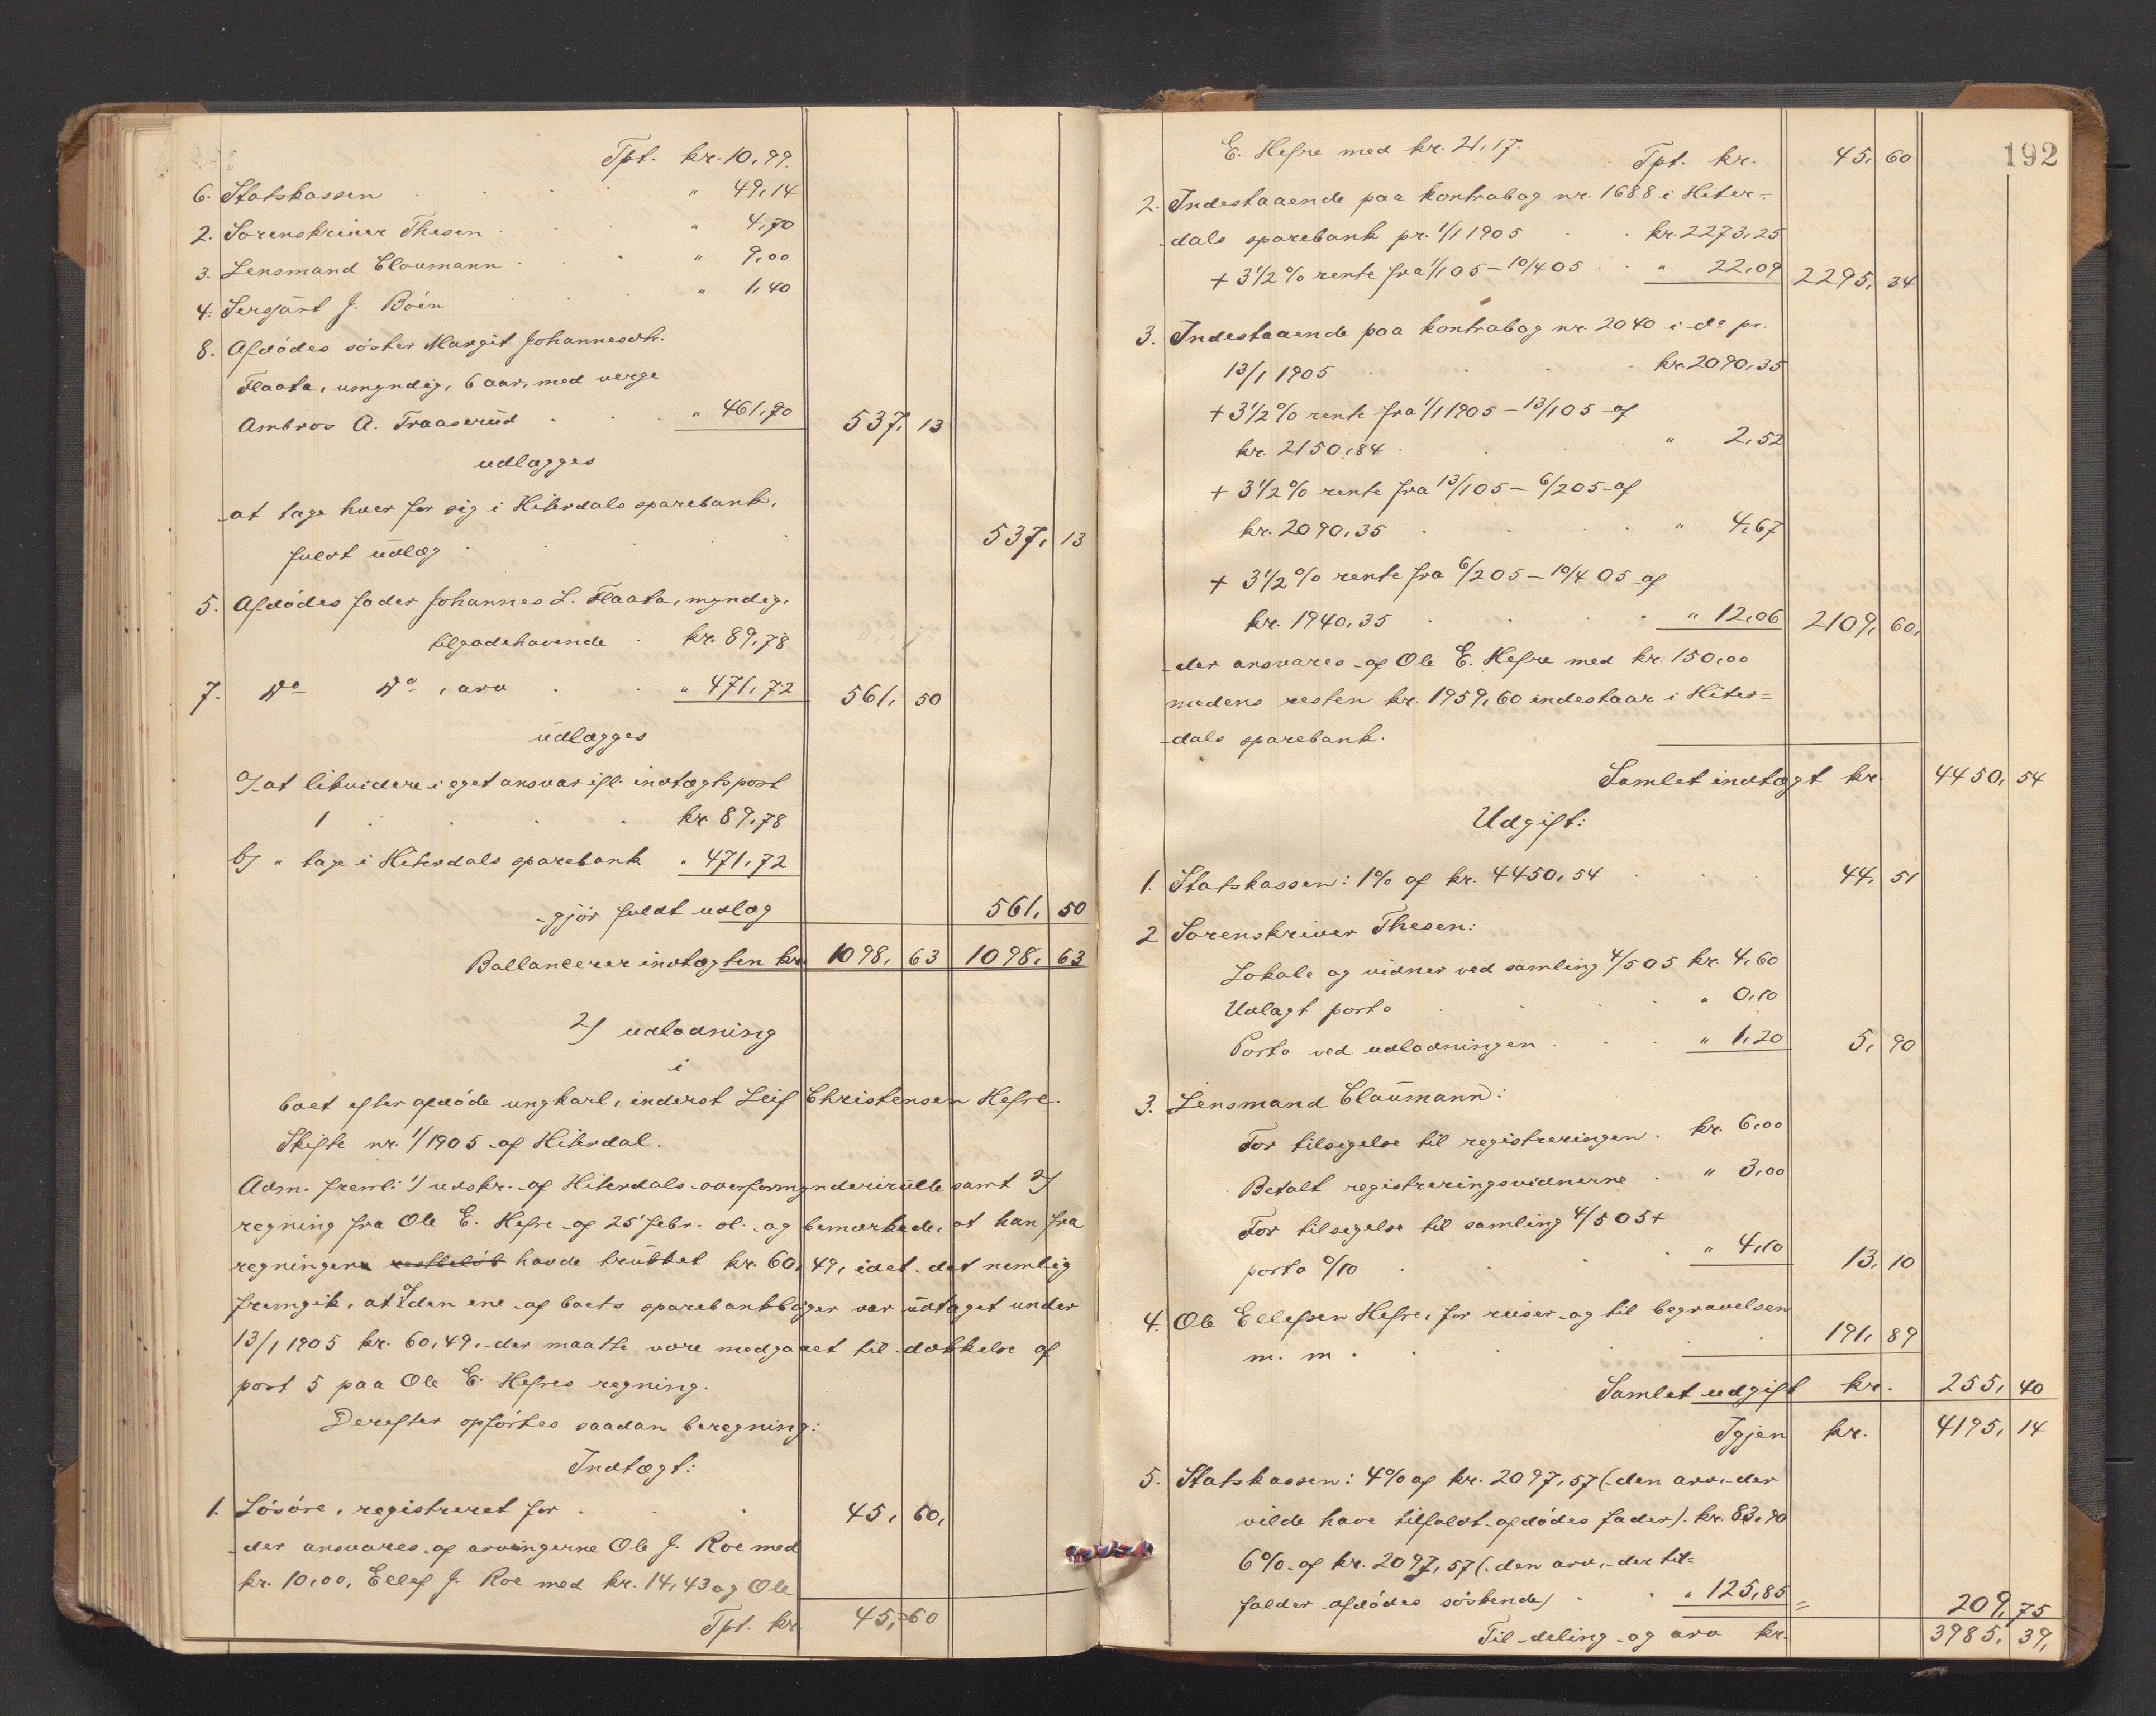 Tpt. kr. 10,99.
6. Statskassen " 49,14
2. Sorenskriver Thesen " 4,70
3. Lensmand Claumann " 9,00
4. Sersjant J. Boen " 1,40
8. Afdødes søster Margit Johannesdtr.
Flaata, umyndig, 6 aar, med verge
Ambros A. Traaserud " 461,90 537, 13
udlægges
at tage hver for sig i Hiterdals sparebank,
fuldt udlæg 537, 13
5. Afdødes fader Johannes L. Flaata, myndig,
tilgodehavende kr. 89,78
7. Do Do, arv " 471,72 561, 50
udlægges
a/ at likvidere i eget ansvar ifl. indtægtspost
1 kr. 89,78
b/ " tage i Hiterdals sparebank " 471,72
gjør fuldt udlæg 561, 50
Ballancerer indtægten kr. 1098, 63 1098, 63
2/ udlodning
i
boet efter afdøde ungkarl, inderst Leif Christensen Hefre.
Skifte nr. 1/1905 af Hiterdal.
Adm. freml. 1/ udskr. af Hiterdals overformynderirulle samt 2/
regning fra Ole E. Hefre af 25 febr. d. og bemærkede, at han fra
regningens restbeløb havde trukket kr. 60,49, idet det nemlig
fremgik, at af den ene af boets sparebankbøger var udtaget under
13/1 1905 kr. 60,49, der maatte være medgaaet til dækkelse af
post 5 paa Ole E. Hefres regning.
Derefter opførtes saadan beregning:
Indtægt:
1. Løsøre, registreret for 45, 60,
der ansvares af arvingerne Ole J. Roe med
kr. 10,00, Ellef J. Roe med kr. 14,43 og Ole
Tpt. kr. 45, 60
192
E. Hefre med kr. 21,17. Tpt. kr. 45, 60
2. Indestaaende paa kontrabog nr. 1688 i Hiter-
dals sparebank pr. 1/1 1905 kr. 2273,25
+ 3 1/2 % rente fra 1/1 05 – 10/4 05 " 22,09 2295, 34
3. Indestaaende paa kontrabog nr. 2040 i do pr.
13/1 1905 kr. 2090,35
+ 3 1/2 % rente fra 1/1 1905 – 13/1 05 af
kr. 2150,84 " 2,52
+ 3 1/2 % rente fra 13/1 05 – 6/2 05 af
kr. 2090,35 " 4,67
+ 3 1/2 % rente fra 6/2 05 – 10/4 05 af
kr. 1940,35 " 12,06 2109, 60,
der ansvares af Ole E. Hefre med kr. 150,00
medens resten kr. 1959,60 indestaar i Hiter=
dals sparebank.
Samlet indtægt kr. 4450, 54
Udgift:
1. Statskassen: 1% af kr. 4450,54 44, 51
2. Sorenskriver Thesen:
Lokale og vidner ved samling 4/5 05 kr. 4,60
Udlagt porto " 0,10
Porto ved udlodningen " 1,20 5, 90
3. Lensmand Claumann:
For tilsigelse til registreringen kr. 6,00
Betalt registreringsvidnerne " 3,00
For tilsigelse til samling 4/5 05 +
porto 0/10 " 4,10 13, 10
4. Ole Ellefsen Hefre, for reiser og til begravelsen
m. m. 191, 89
Samlet udgift kr. 255, 40
Igjen kr. 4195, 14
5. Statskassen: 4% af kr. 2097,57 (den arv, der
vilde have tilfaldt afdødes fader). kr. 83,90
6% af kr. 2097,57 (den arv, der til=
falder afdødes søskende) " 125,85 = 209, 75
Til deling og arv kr. 3985, 39,